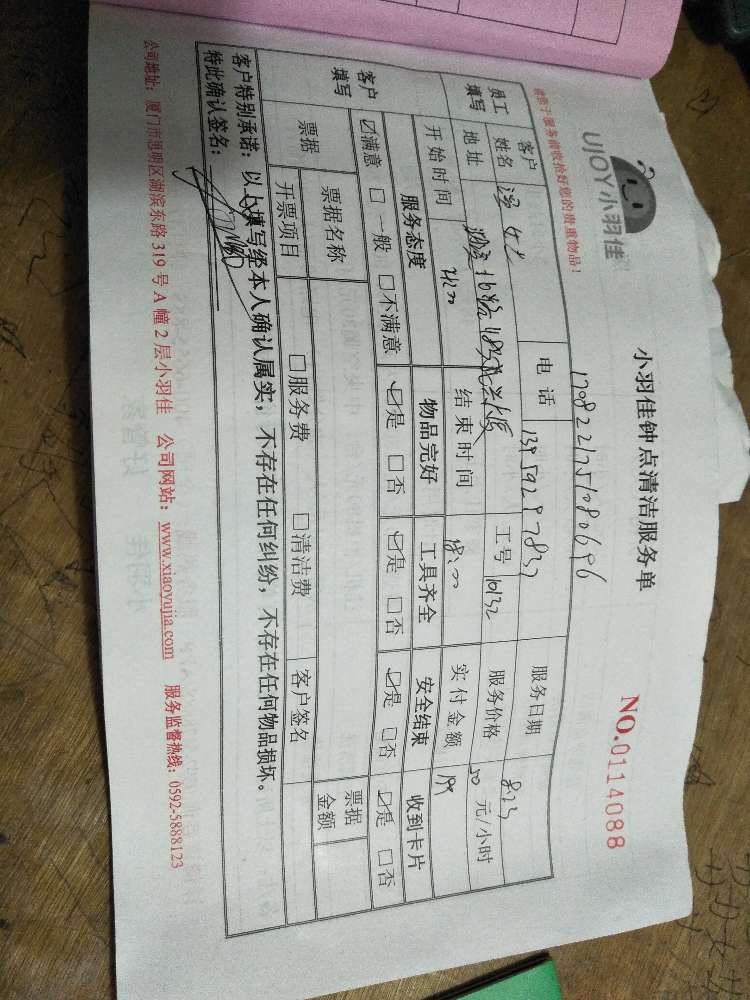 UJOY小羽佳
小羽佳钟点清洁服务单
NO.0114088
请您于服务前收拾好您的贵重物品!
1708221751080696
员工填写
客户姓名 电话 服务日期 8.23
地址 工号 10132 服务价格 50 元/小时
开始时间 结束时间 18:00 实付金额 199
客户填写
服务态度 物品完好 工具齐全 安全结束 收到卡片
☑满意 □一般 □不满意 ☑是 □否 ☑是 □否 ☑是 □否 ☑是 □否
票据 票据名称 票据金额
开票项目 □服务费 □清洁费 客户签名
客户特别承诺:以上填写经本人确认属实,不存在任何纠纷,不存在任何物品损坏。
特此确认签名:
公司地址:厦门市思明区湖滨东路 319 号 A 幢 2 层小羽佳 公司网站:www.xiaoyujia.com 服务监督热线:0592-5888123